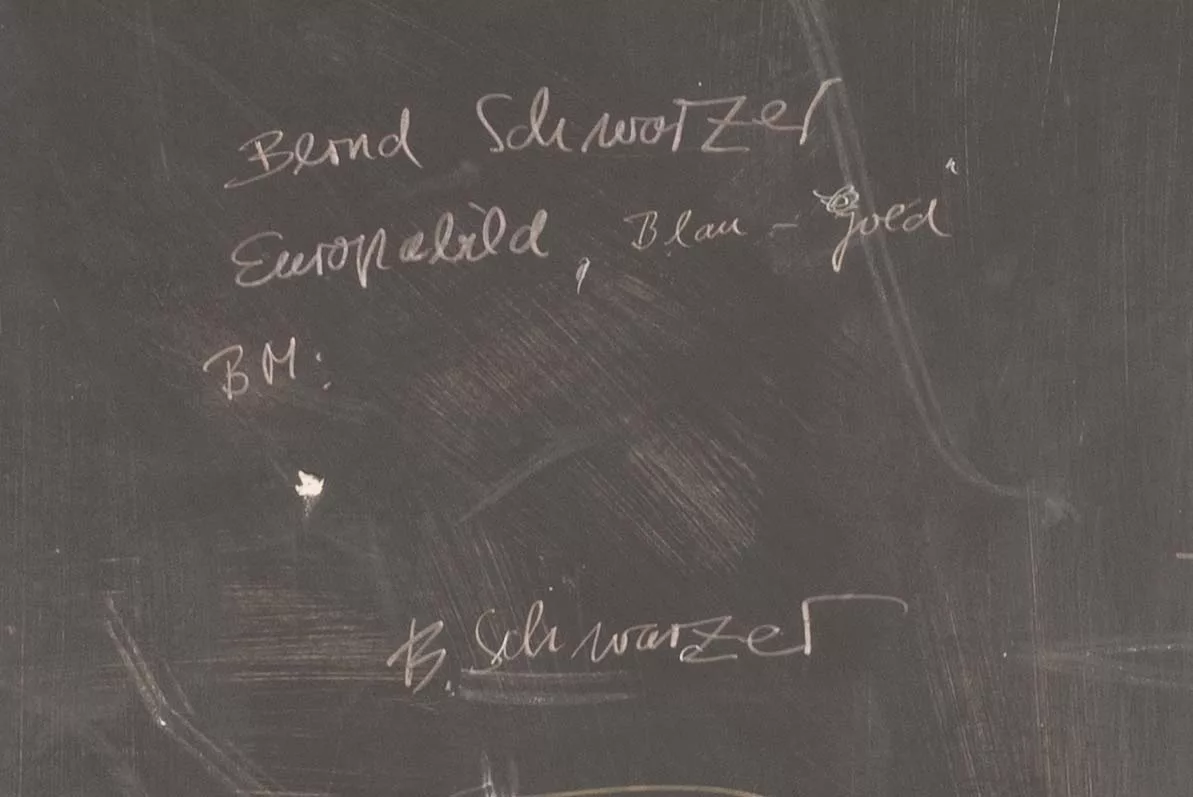 Bernd Schwarzer
Europabild, Blau - Gold"
BM:
B. Schwarzer